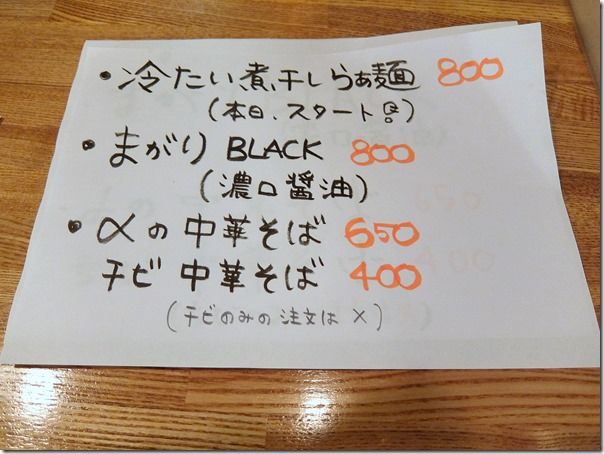 ・冷たい煮干しらぁ麺 800
(本日、スタート!?)
・まがり BLACK 800
(濃口醤油)
・〆の中華そば 650
チビ 中華そば 400
(チビのみの注文は ×)